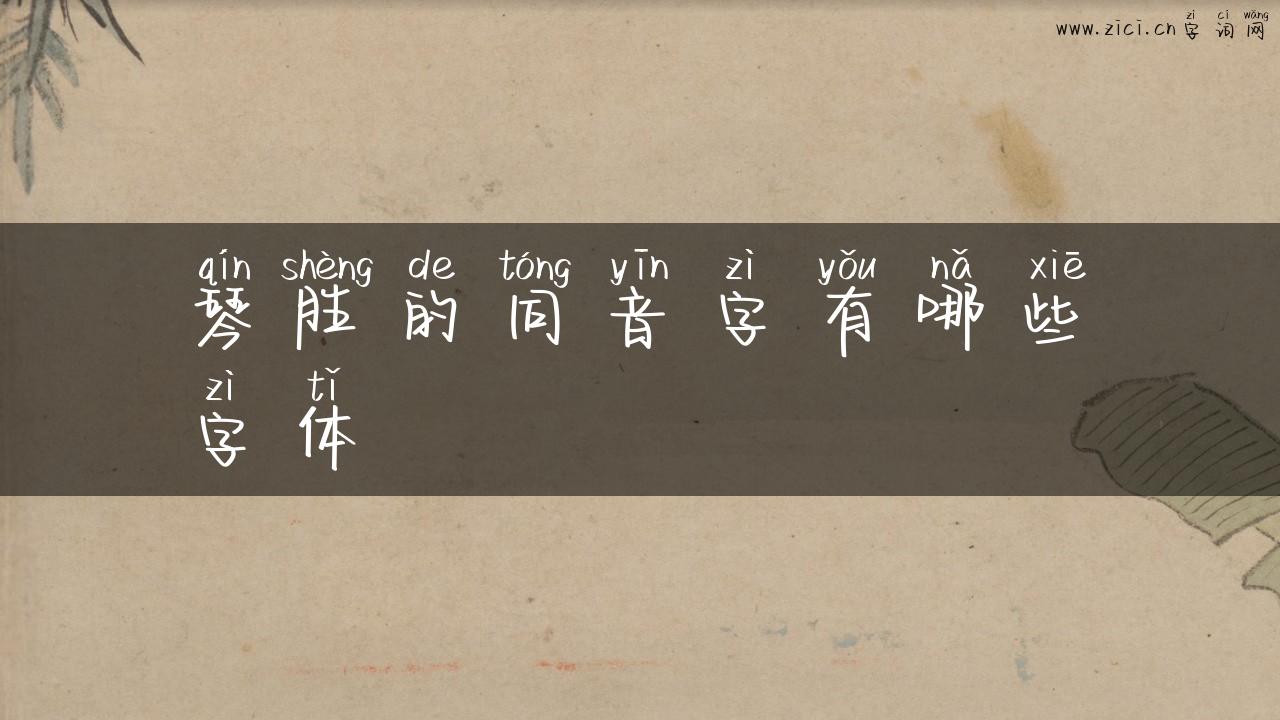 zì cí wǎng
www.zici.cn 字 词 网
qín shèng de tóng yīn zì yǒu nǎ xiē
琴 胜 的 同 音 字 有 哪 些
zì tǐ
字 体